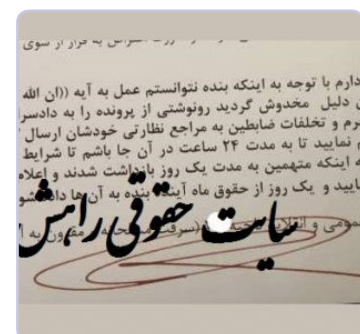 دارم با توجه به اینکه بنده نتوانستم عمل به آیه ((ان الله
دلیل مخدوش گردید رونوشتی از پرونده را به دادسر
رم و تخلفات ضابطین به مراجع نظارتی خودشان ارسال
نمایید تا به مدت ۲۴ ساعت در آن جا باشم تا شرایط
اینکه متهمین به مدت یک روز بازداشت شدند و اعلام
مایید و یک روز از حقوق ماه آینده بنده به آن ها داده شو
سایت حقوقی راهش